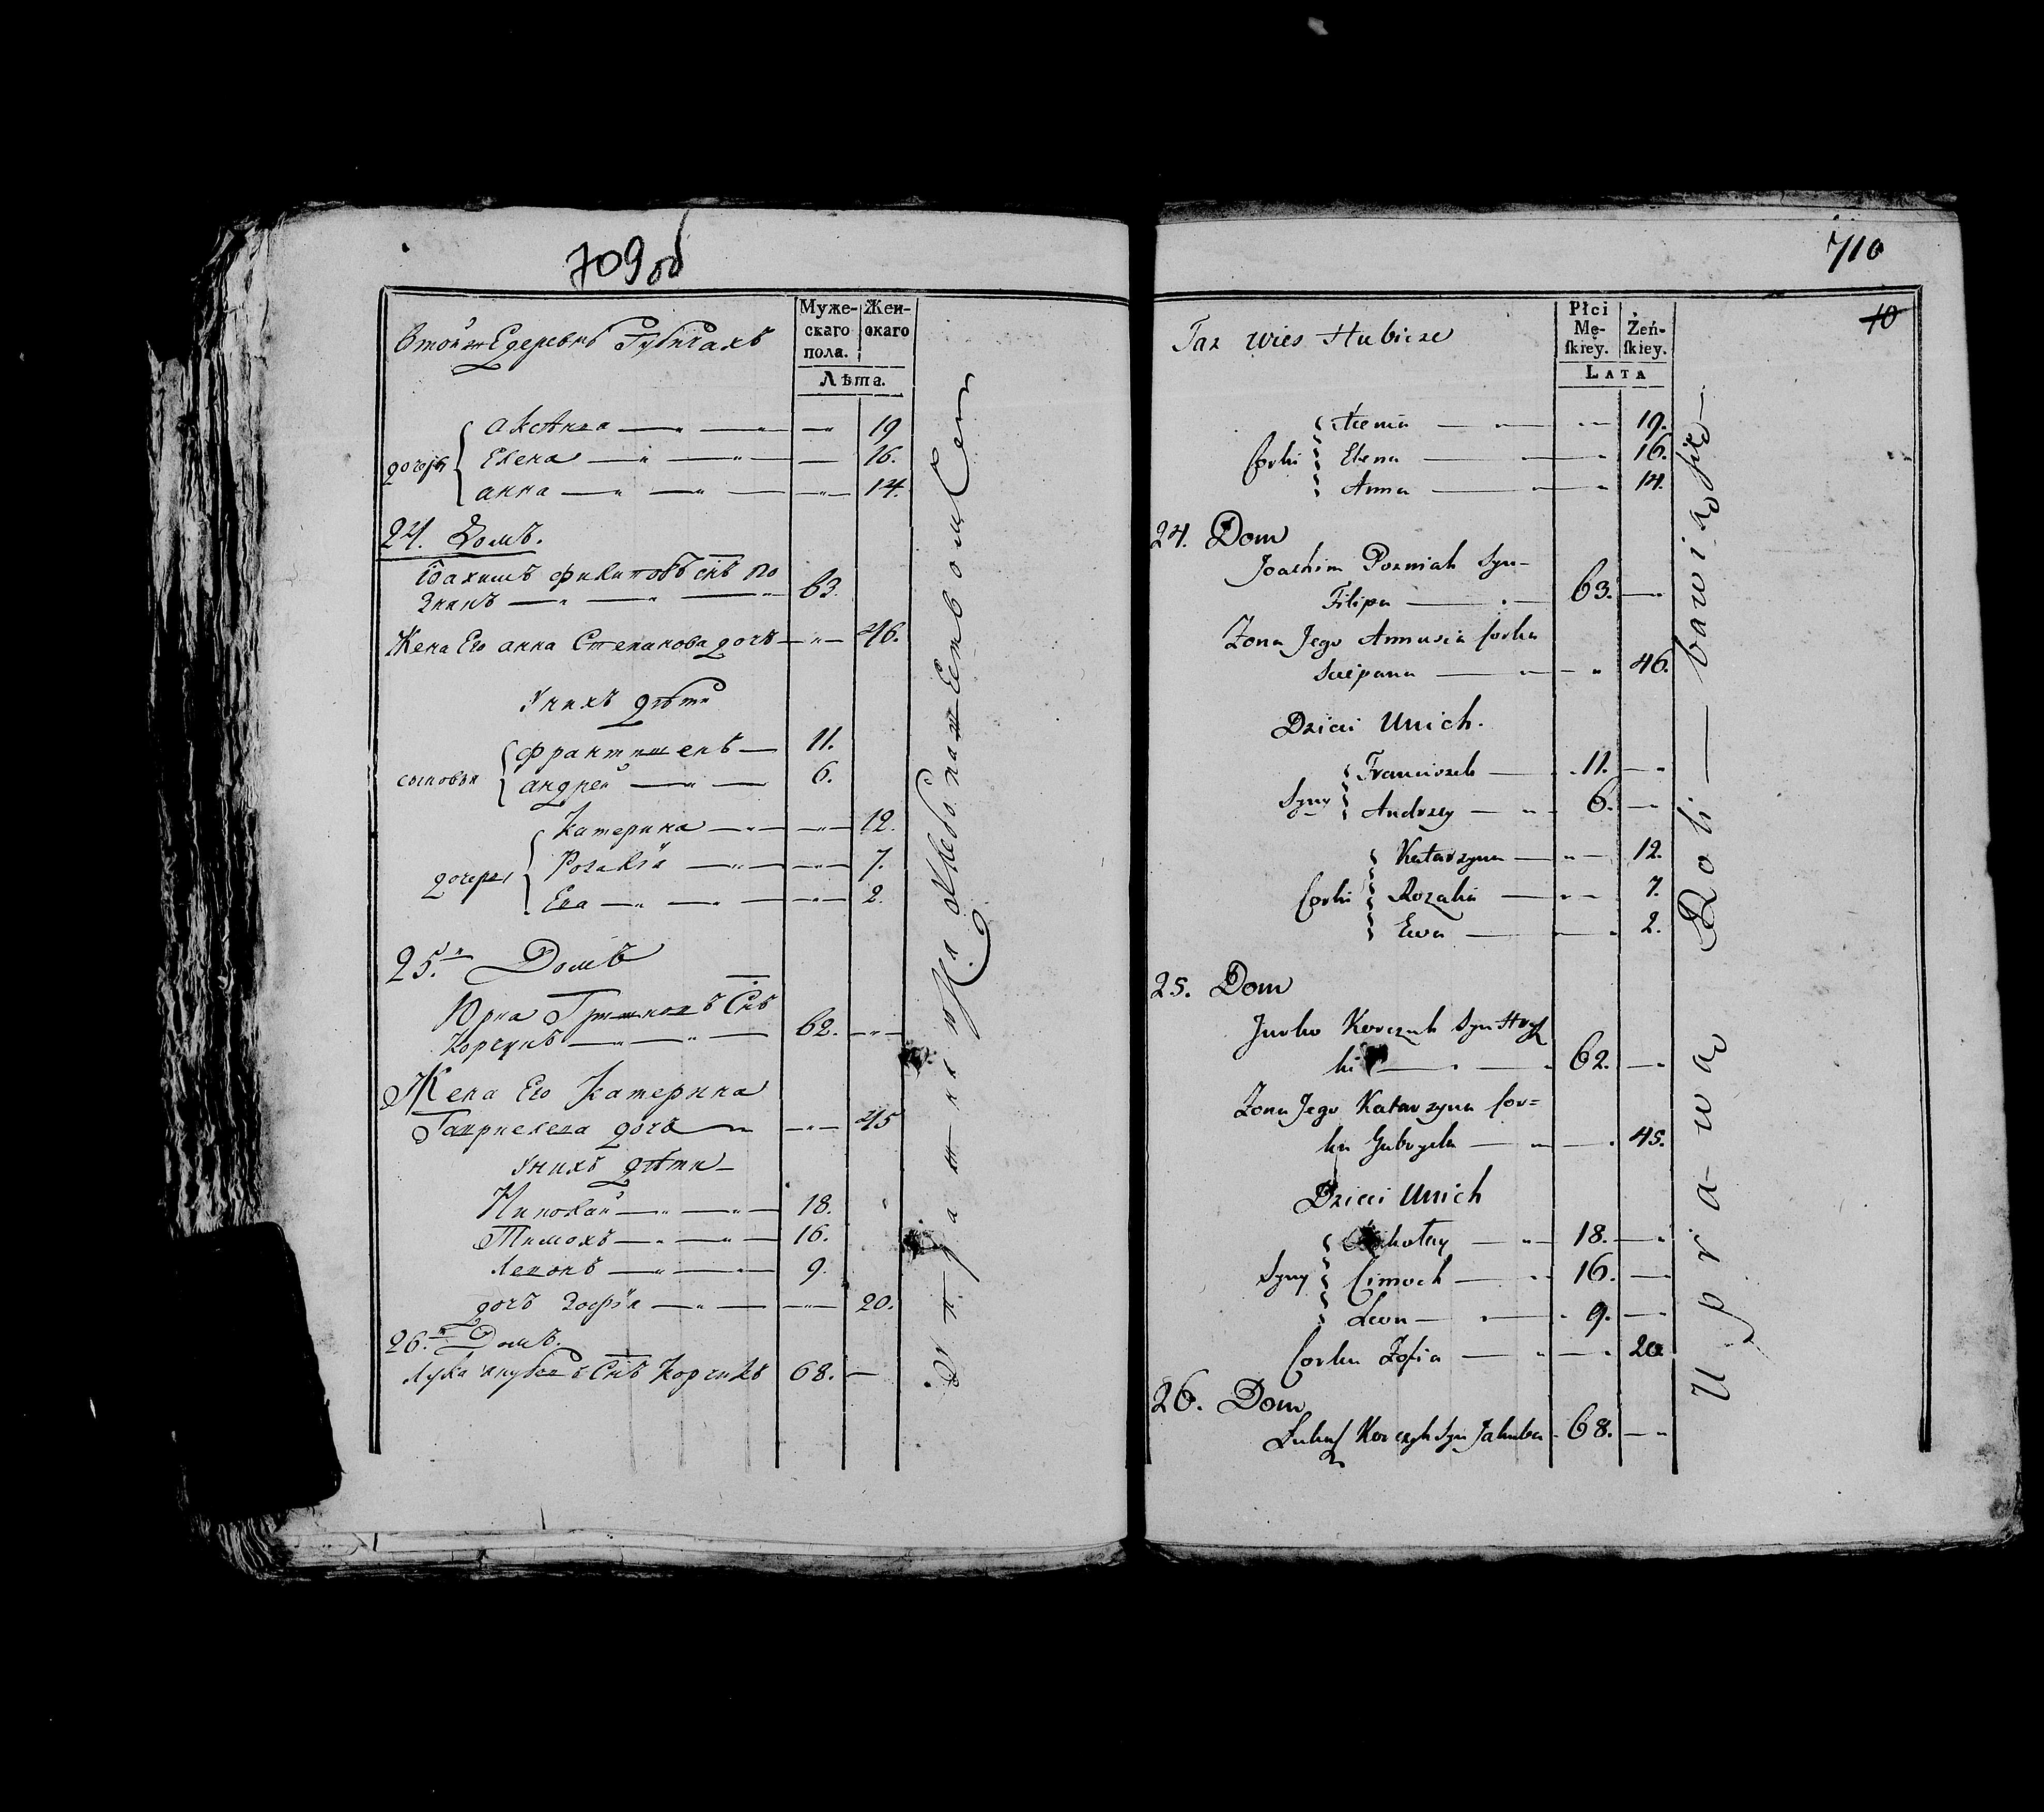 709 об
Втойже деревнѣ Губичахъ
Муже-
скаго
пола.
Жен-
скаго
Лѣта.
дочери
19
Елена 16.
анна 14.
24. Домъ.
Іоахимъ филиповъ снъ По
знякъ 63.
Жена Его анна Степанова дочь 46.
У нихъ дѣти
сыновья
франтишекъ 11.
андрей 6.
дочери
Катерина 12.
Розалія 7.
Ева 2.
25. Домъ
Юрка Гришковъ Снъ
Корчукъ 62.
Жена Его Катерина
Гавриелева дочь 45
У нихъ дѣти
Николай 18.
Тимохъ 16.
Леонъ 9.
дочь Зофія 20.
26. Домъ.
Лука Якубовъ Снъ Корчикъ 68.
710
10
Taz wies Hubicze
Płci
Mę-
ſkiey.
Żeń-
ſkiey.
LATA
Corki
19.
Elena 16.
Anna 14.
24. Dom
Joachim Pozniak Syn
Filipa 63.
Zona Jego Annusia Corka
Sciepana 46.
Dzieci Unich.
Syny
Franciszek 11.
Andrzey 6.
Corki
Katarzyna 12.
Rozalia 7.
Ewa 2.
25. Dom
Jurko Korczuk Syn Hrysz
ki 62.
Zona Jego Katarzyna Cor=
ka Gabryela 45.
Dzieci Unich
Syny
Mikołay 18.
Cimoch 16.
Leon 9.
Corka Zofia 20
26. Dom
Łukasz Korczyk Syn Jakuba 68.
Uprawą Roli bawią się